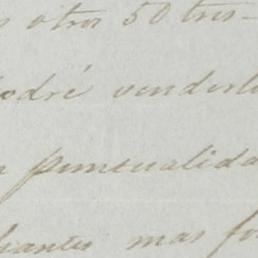 s otros 50 tris-
odré vender
puntualida
antes mas fo